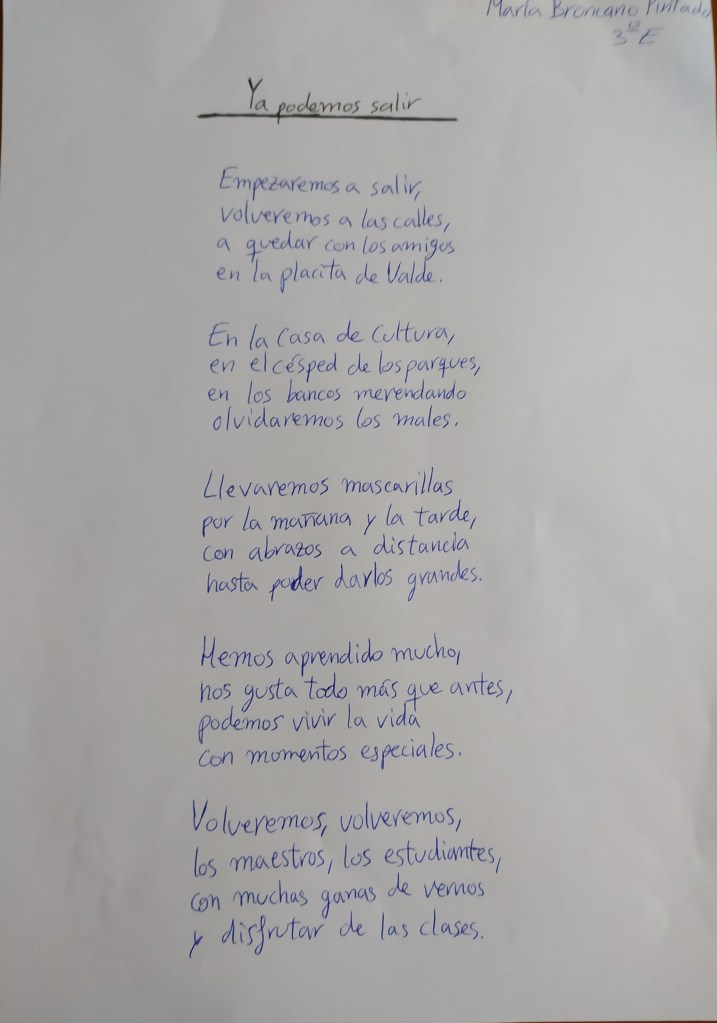 María Broncano Pintado
3º E
Ya podemos salir
Empezaremos a salir,
volveremos a las calles,
a quedar con los amigos
en la placita de Valde.
En la Casa de Cultura,
en el césped de los parques,
en los bancos merendando
olvidaremos los males.
Llevaremos mascarillas
por la mañana y la tarde,
con abrazos a distancia
hasta poder darlos grandes.
Hemos aprendido mucho,
nos gusta todo más que antes,
podemos vivir la vida
con momentos especiales.
Volveremos, volveremos,
los maestros, los estudiantes,
con muchas ganas de vernos
y disfrutar de las clases.